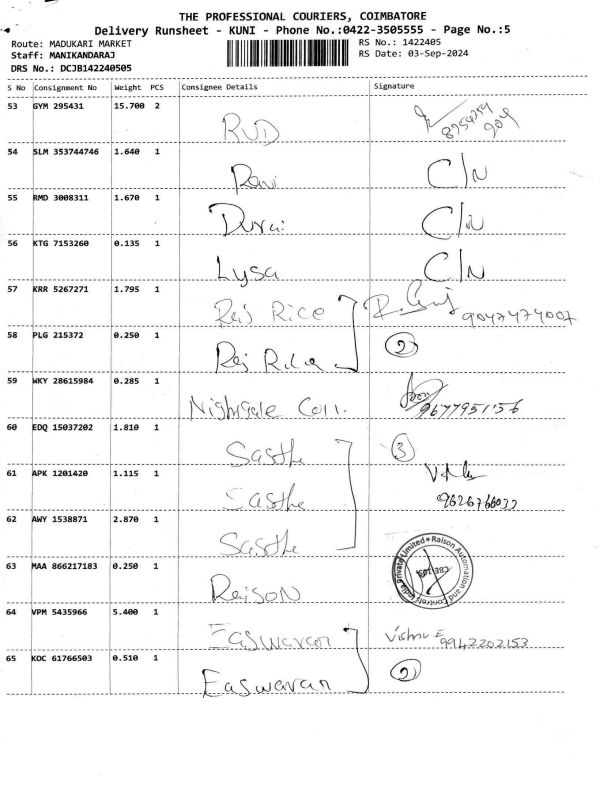 THE PROFESSIONAL COURIERS, COIMBATORE
Delivery Runsheet - KUNI - Phone No.:0422-3505555 - Page No.:5
Route: MADUKARI MARKET RS No.: 1422405
Staff: MANIKANDARAJ RS Date: 03-Sep-2024
DRS No.: DCJB142240505
S No Consignment No Weight PCS Consignee Details Signature
53 GYM 295431 15.700 2 RUD
54 SLM 353744746 1.640 1 Ravi C/N
55 RMD 3008311 1.670 1 Durai C/N
56 KTG 7153260 0.135 1 Lysa C/N
57 KRR 5267271 1.795 1 Raj Rice 9047474007
58 PLG 215372 0.250 1 Raj 2
59 WKY 28615984 0.285 1 9677795156
60 EDQ 15037202 1.810 1 Sasthe 3
61 APK 1201420 1.115 1 Sasthe
62 AWY 1538871 2.870 1 Sasthe
63 MAA 866217183 0.250 1 Raison Raison Automation and Controls India Private Limited
64 VPM 5435966 5.400 1 Easwaran Vishnu E 9942202153
65 KOC 61766503 0.510 1 Easwaran 2